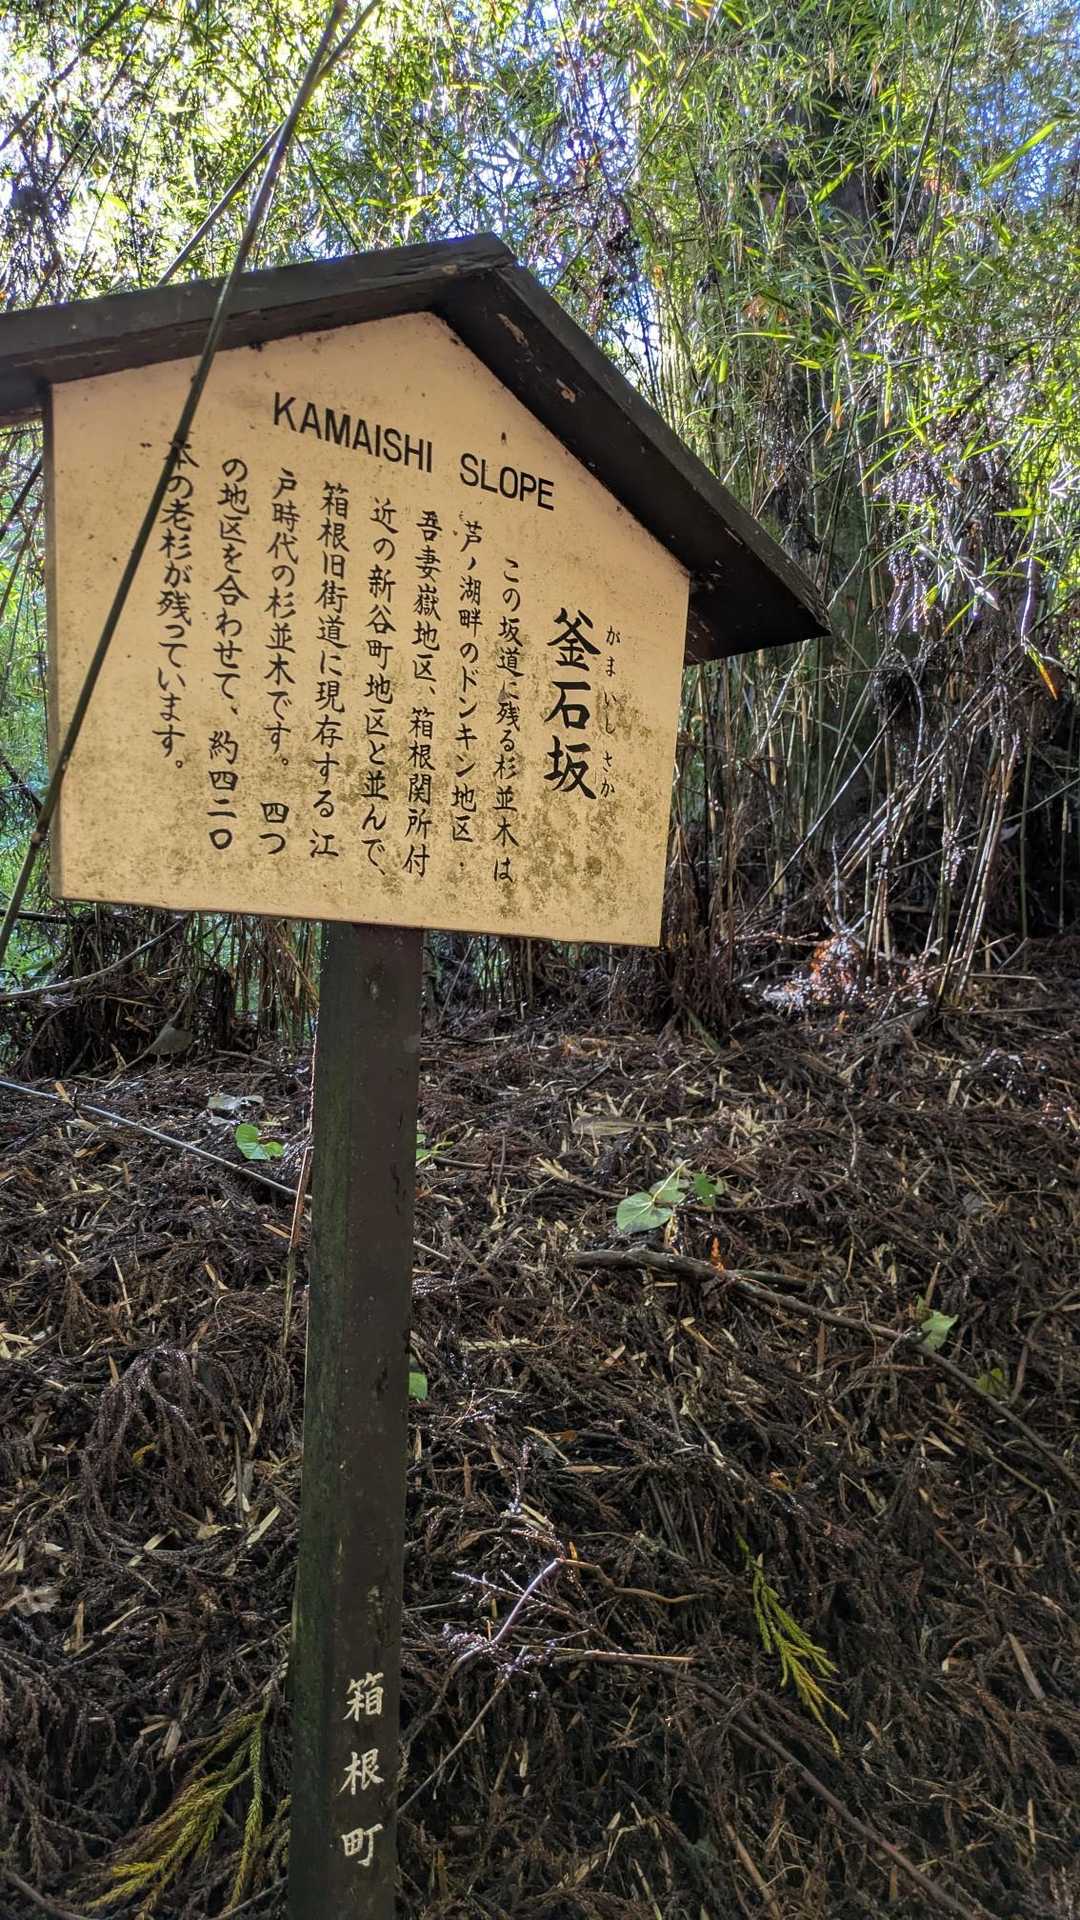 KAMAISHI SLOPE
釜石坂
がまいしさか
この坂道に残る杉並木は
芦ノ湖畔のドンキン地区・
吾妻嶽地区、箱根関所付
近の新谷町地区と並んで、
箱根旧街道に現存する江
戸時代の杉並木です。四つ
の地区を合わせて、約四二〇
本の老杉が残っています。
箱根町